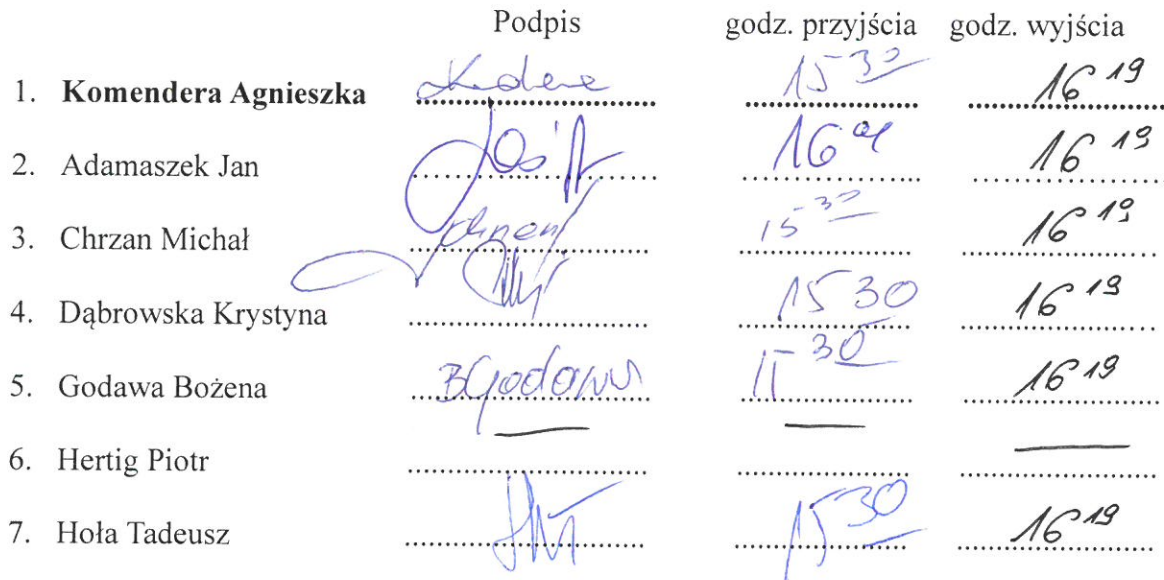 Podpis godz. przyjścia godz. wyjścia
1. Komendera Agnieszka 15 30 16 19
2. Adamaszek Jan 16 19
3. Chrzan Michał 15 30 16 19
4. Dąbrowska Krystyna 15 30 16 19
5. Godawa Bożena BGodawa 15 30 16 19
6. Hertig Piotr — — —
7. Hoła Tadeusz 15 30 16 19